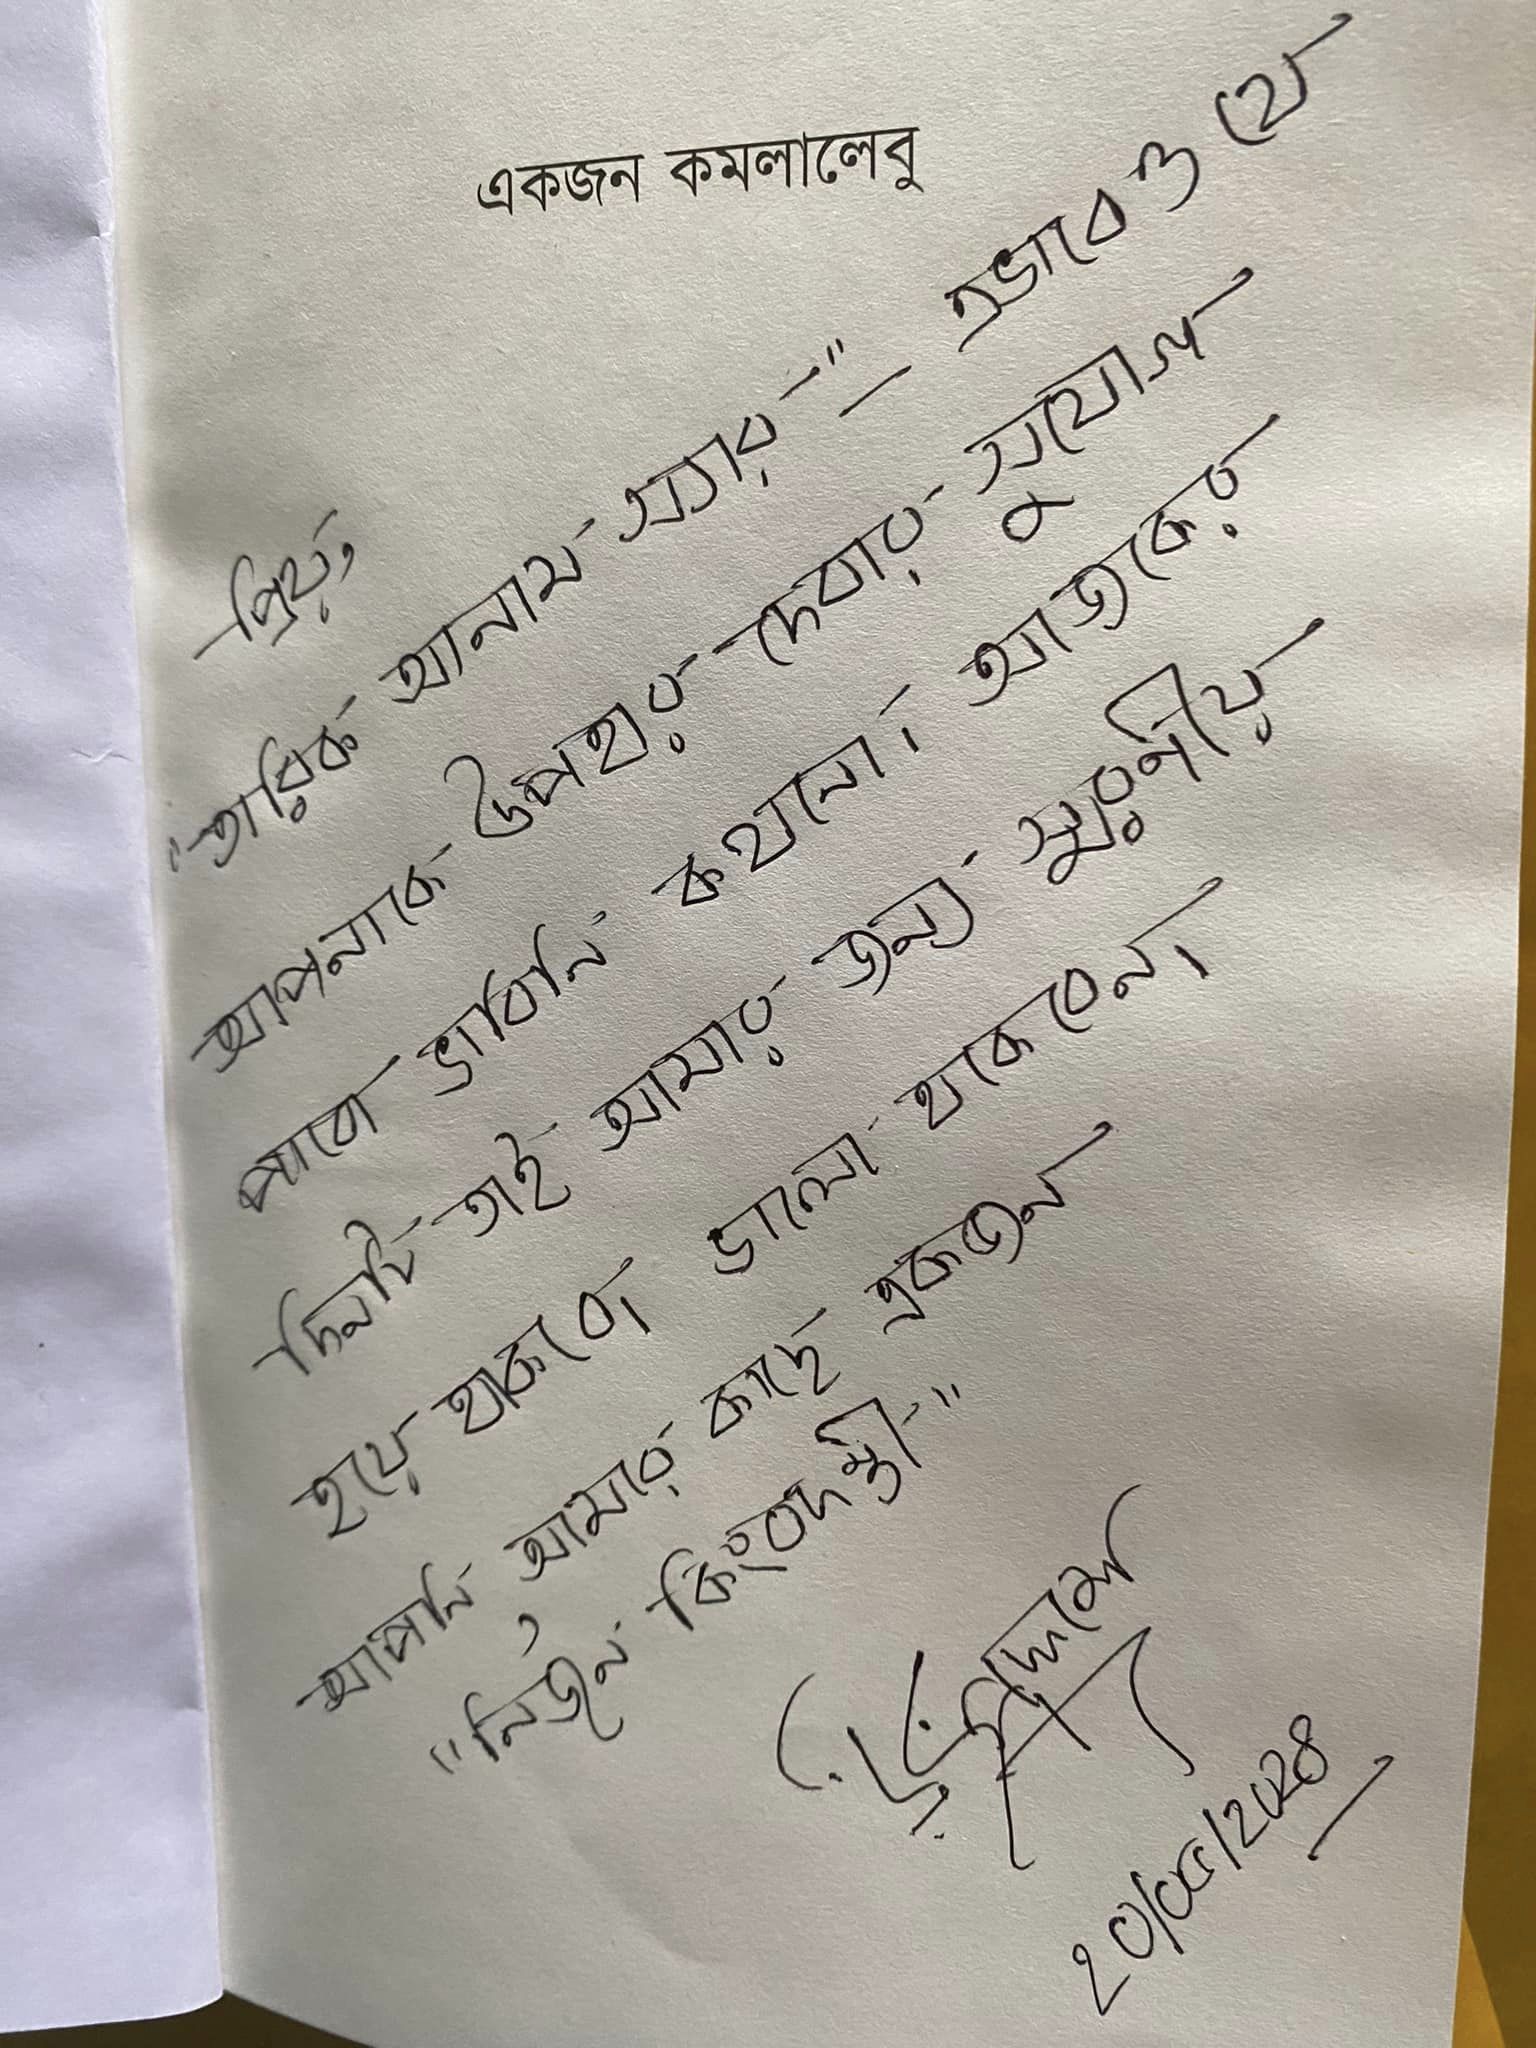 একজন কমলালেবু
প্রিয়,
"তারিক আনাম স্যার" — এভাবেও যে
আপনাকে উপহার দেবার সুযোগ
পাবো ভাবিনি কখনো। আজকের
দিনটি তাই আমার জন্য স্মরণীয়
হয়ে থাকবে। ভালো থাকবেন।
আপনি আমার কাছে একজন
"নির্জন কিংবদন্তী"
২০/০৫/২০২৪